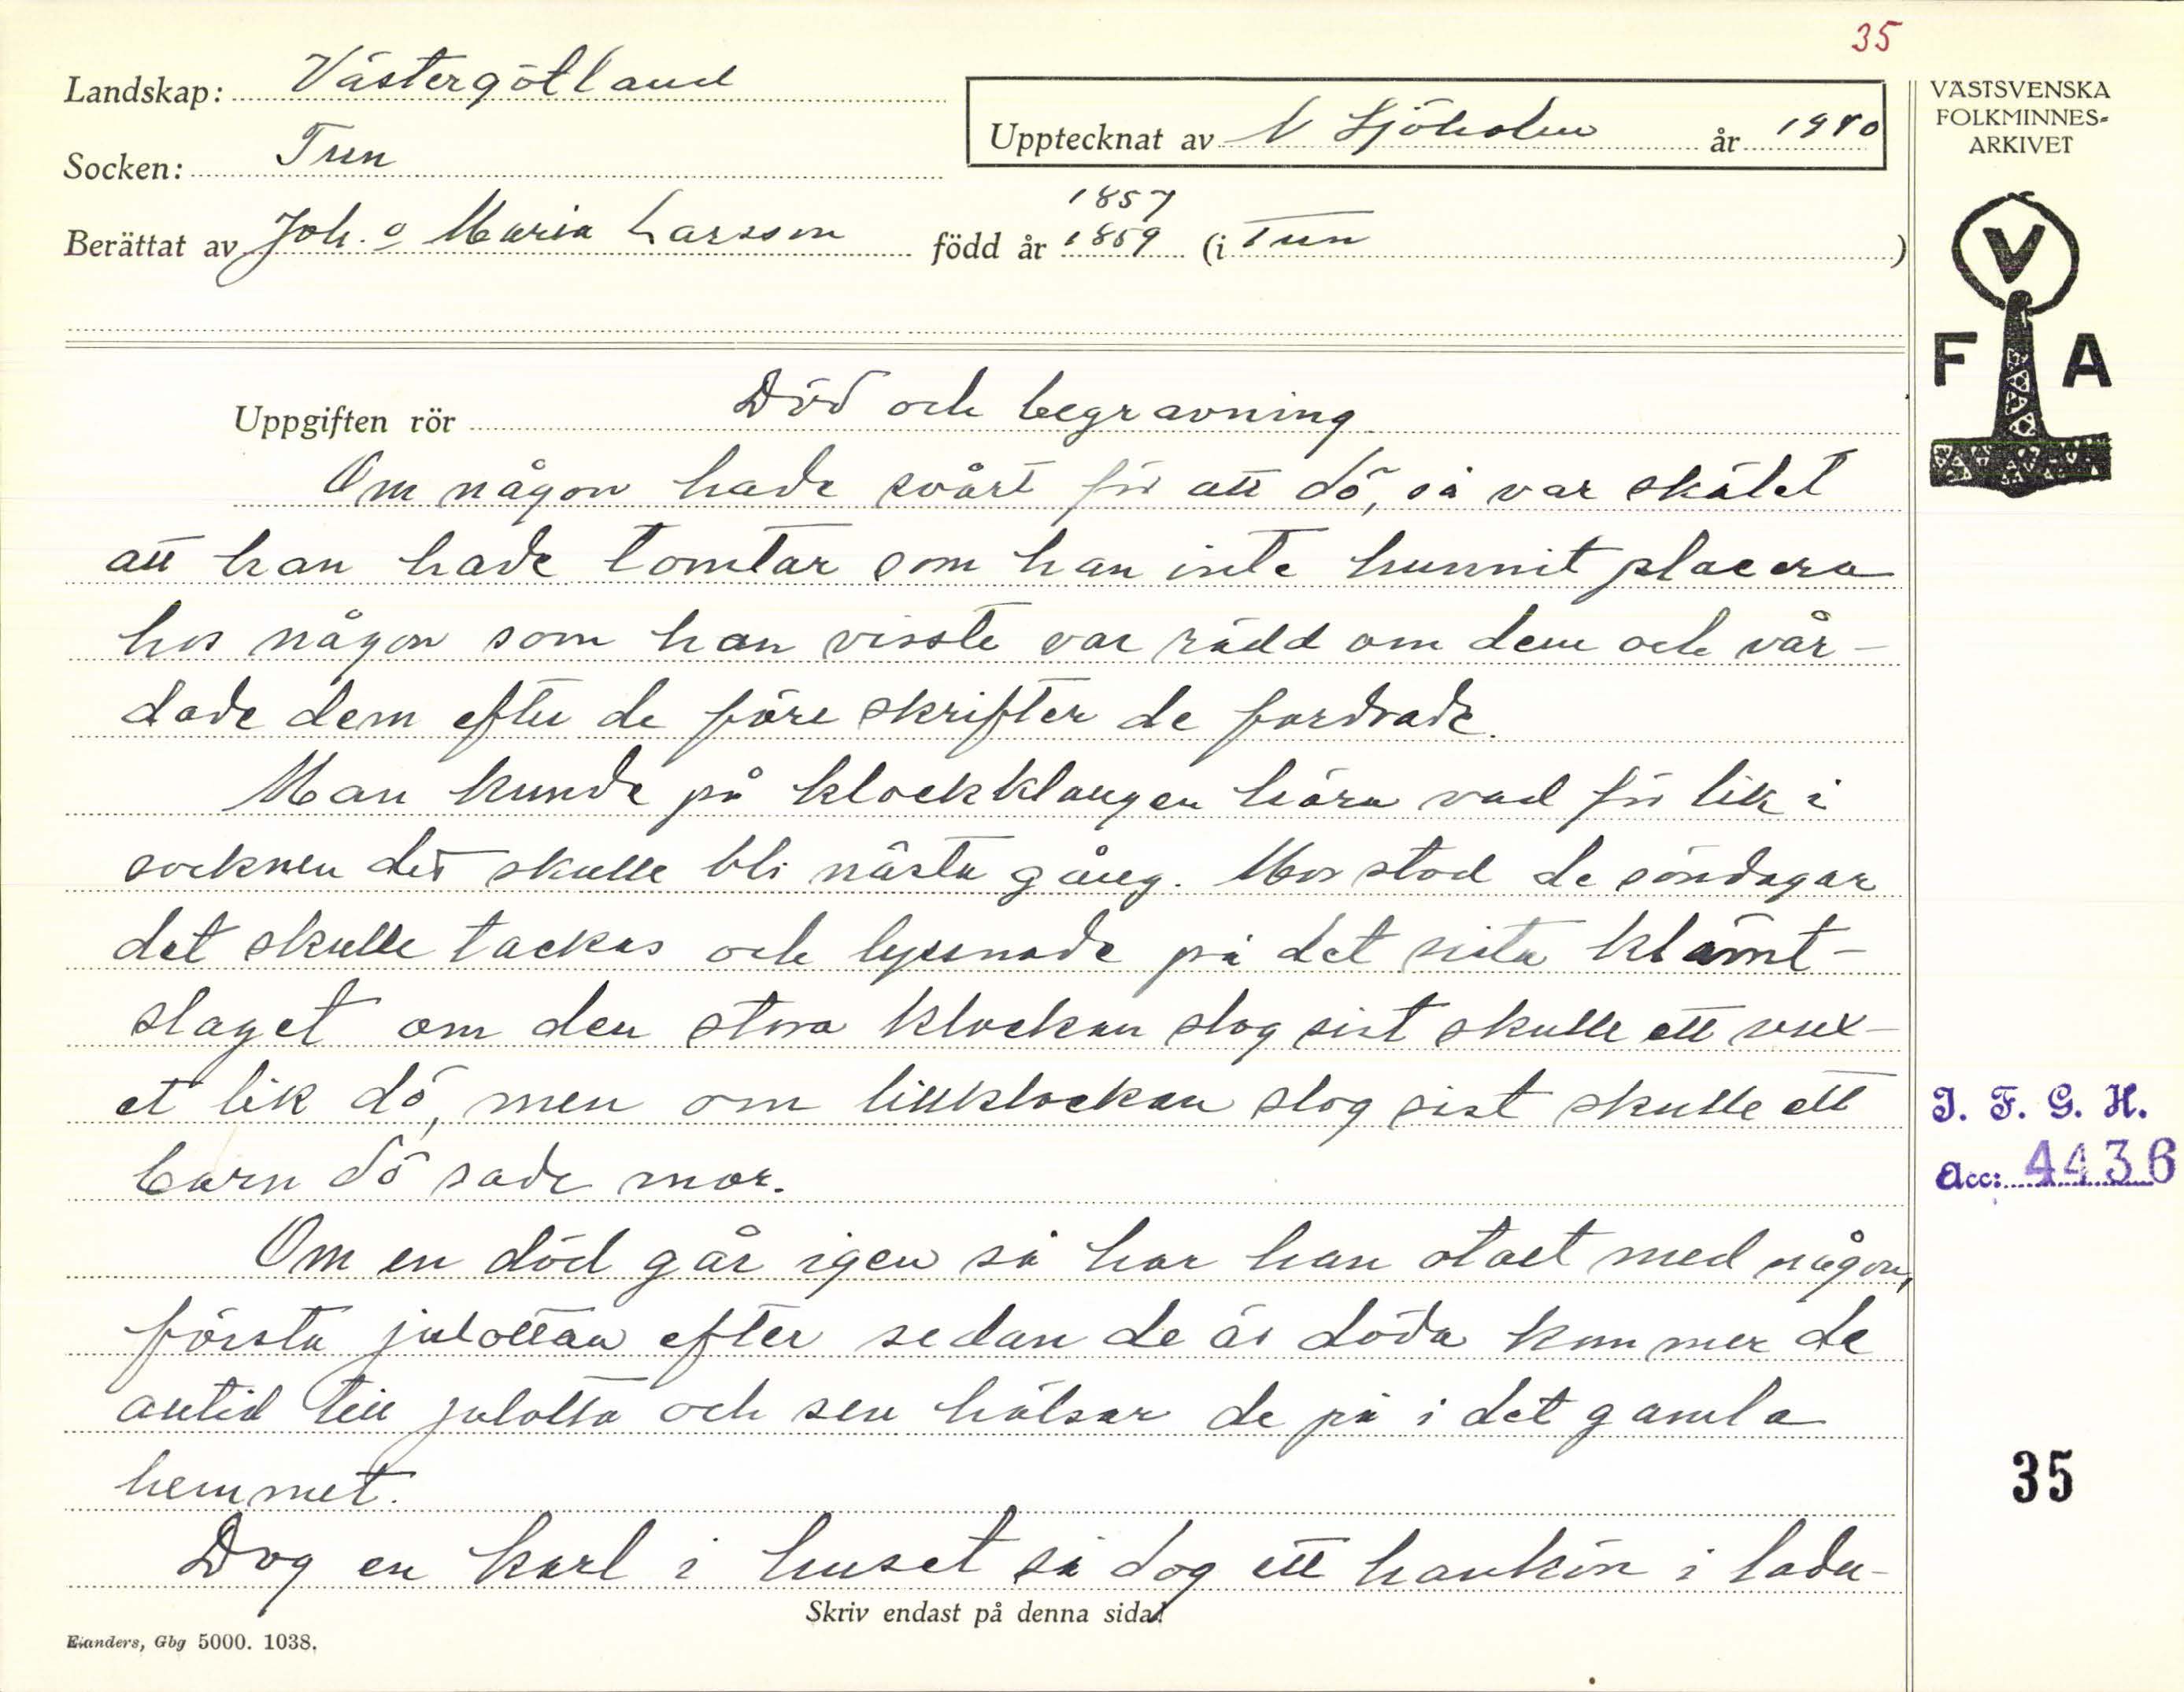 35
Landskap: Västergötland
Upptecknat av N Sjöholm år 1940
Socken: Tun
1857
Berättat av Joh. o Maria Larsson född år 1859 (i Tun)
VÄSTSVENSKA
FOLKMINNES-
ARKIVET
V
F A
Uppgiften rör Död och begravning
Om någon hade svårt för att dö, så var skälet
att han hade tomtar som han inte hunnit placera
hos någon som han visste var rädd om dem och vår-
dade dem efter de föreskrifter de fordrade.
Man kunde på klockklangen höra vad för lik i
socknen det skulle bli nästa gång. Mor stod de söndagar
det skulle tackas och lyssnade på det sista klämt-
slaget om den stora klockan slog sist skulle ett vux-
et lik dö, men om lillklockan slog sist skulle ett
barn dö sade mor.
Om en död går igen så har han otalt med någon,
första julottan efter sedan de är döda kommer de
alltid till julotta och sen hälsar de på i det gamla
hemmet.
Dog en karl i huset så dog ett hankön i ladu-
Skriv endast på denna sida!
Elanders, Gbg 5000. 1038.
I. F. G. H.
Acc: 4436
35